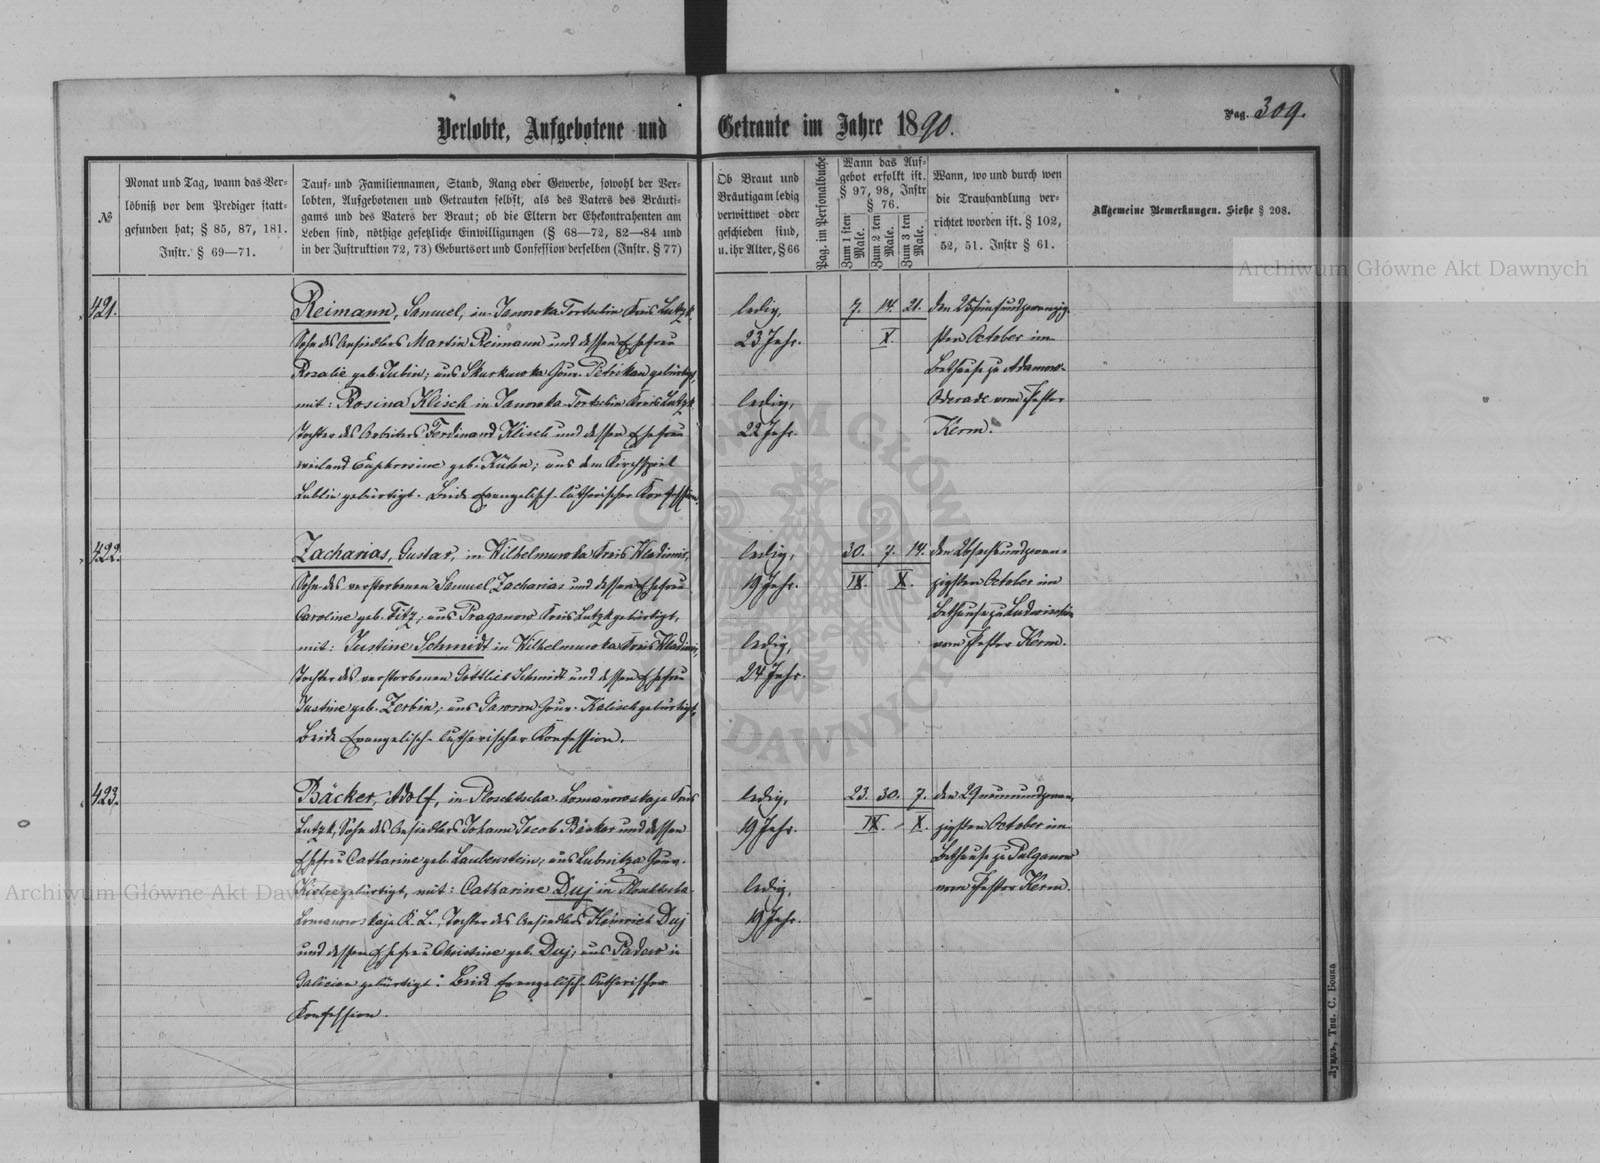 Verlobte, Aufgebotene und Getraute im Jahre 1890.
Pag. 309.
№
Monat und Tag, wann das Ver-
löbniß vor dem Prediger statt-
gefunden hat; § 85, 87, 181.
Instr. § 69—71.
Tauf- und Familiennamen, Stand, Rang oder Gewerbe, sowohl der Ver-
lobten, Aufgebotenen und Getrauten selbst, als des Vaters des Bräuti-
gams und des Vaters der Braut; ob die Eltern der Ehekontrahenten am
Leben sind, nöthige gesetzliche Einwilligungen (§ 68—72, 82—84 und
in der Justruktion 72, 73) Geburtsort und Confession derselben (Instr. § 77)
Ob Braut und
Bräutigam ledig
verwittwet oder
geschieden sind,
u. ihr Alter, § 66
Pag. im Personalbuche
Wann das Auf-
gebot erfolkt ist.
§ 97, 98, Instr
§ 76.
Zum 1 sten
Male.
Zum 2 ten
Male.
Zum 3 ten
Male.
Wann, wo und durch wen
die Trauhandlung ver-
richtet worden ist. § 102,
52, 51. Instr § 61.
Allgemeine Bemerkungen. Siehe § 208.
421.
Reimann, Samuel, in Janowka Tortschin Kreis Lutzk
Sohn des Ansiedlers Martin Reimann und dessen Ehefrau
Rosalie geb. Jubin; aus Skurkuwka Gouv. Petrikau gebürtigt,
mit: Rosina Klisch in Janowka Tortschin Kreis Lutzk
Tochter des Arbeiters Ferdinand Klisch und dessen Ehefrau
weiland Euphrosine geb. Kühn; aus dem Kirchspiel
Lublin gebürtigt. Beide Evangelisch-lutherischer Konfession.
ledig,
23 Jahr.
ledig,
22 Jahr.
7. 14. 21.
X.
den 25 fünfundzwanzig-
sten October im
Bethause zu Adamow-
vom Pastor
Kerm.
422.
Zacharias, Gustav, in Wilhelmuwka Kreis Wladimir,
Sohn des verstorbenen Samuel Zacharias und dessen Ehefrau
Caroline geb. Fitz; aus Praganow Kreis Lutzk gebürtigt,
mit: Justine Schmidt in Wilhelmuwka Kreis Wladimir,
Tochter des verstorbenen Gottlieb Schmidt und dessen Ehefrau
Justine geb. Zerbin; aus Gouv. Kalisch gebürtigt,
Beide Evangelisch-lutherischer Konfession.
ledig,
19 Jahr.
ledig,
24 Jahr.
30. 7. 14.
IX. X.
den 26 sechsundzwan-
zigsten October im
Bethause zu
vom Pastor Kerm.
423.
Bäcker, Adolf, in Ploschtscha Romanowskaja Kreis
Lutzk, Sohn des Ansiedlers Johann Jacob Bäcker und dessen
Ehefrau Catharine geb. Laubenstein; aus Lubnitza Gouv.
Kielce gebürtigt, mit: Catharine Duj in Ploschtscha-
Romanowskaja K. L., Tochter des Ansiedlers Heinrich Duj
und dessen Ehefrau Christine geb. Duj; aus Padew in
Galicien gebürtigt. Beide Evangelisch-lutherischer
Konfession.
ledig,
19 Jahr.
ledig,
19 Jahr.
23. 30. 7.
IX. X.
den 29 neunundzwan-
zigsten October im
Bethause zu Pulganow
vom Pastor Kerm.
Луцкъ, Тип. С. Бонка
Archiwum Główne Akt Dawnych
Archiwum Główne Akt Dawnych
ARCHIWUM GŁÓWNE AKT DAWNYCH